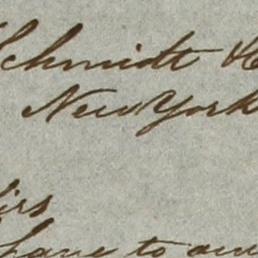 Schmidt &
New York
Sirs
have to